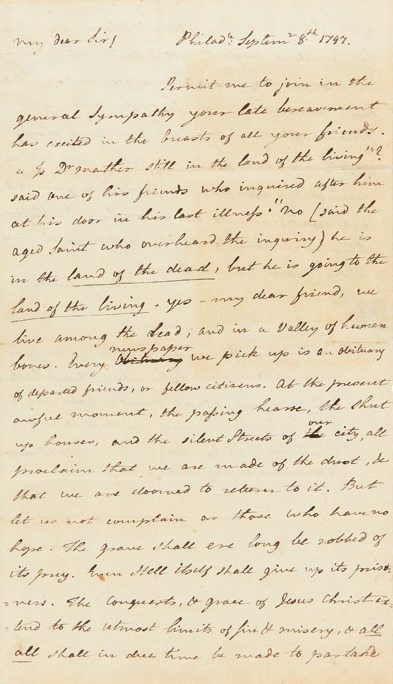 My dear Sir/ Philada. Septemr 8th 1797.
Permit me to join in the
general sympathy your late bereavement
has excited in the breasts of all your friends.
"Is Dr Mather still in the land of the living"?
said one of his friends who inquired after him
at his door in his last illness. "No (said the
aged Saint who overheard the inquiry) he is
in the land of the dead, but he is going to the
land of the living. Yes – my dear friend, we
live among the dead, and in a Valley of human
bones. Every newspaper we pick up is an obituary
of departed friends, or fellow citizens. At the present
awful moment, the passing hearse, the shut
up houses, and the silent streets of our city, all
proclaim that we are made of the dust, &
that we are doomed to return to it. But
let us not complain as those who have no
hope. The grave shall ere long be robbed of
its prey. Even Hell itself shall give up its priso-
-ners. The conquests, & grace of Jesus Christ ex-
-tend to the utmost limits of sin & misery, & all
all shall in due time be made to partake